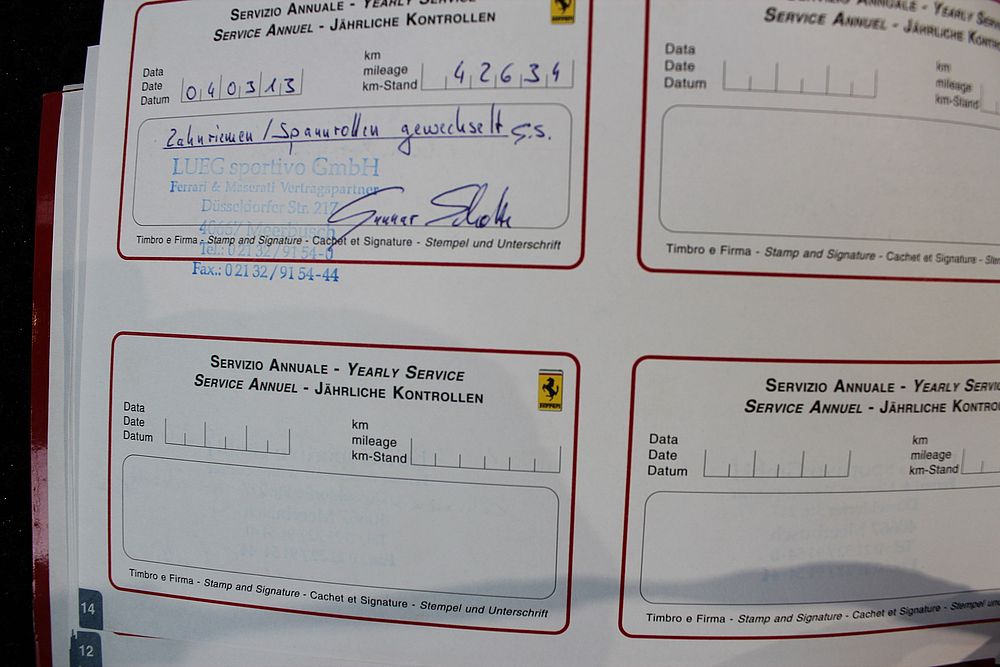 SERVIZIO ANNUALE - YEARLY SERVICE
SERVICE ANNUEL - JÄHRLICHE KONTROLLEN
Ferrari
Data
Date
Datum
040313
km
mileage
km-Stand
42634
Zahnriemen / Spannrollen gewechselt
LUEG sportivo GmbH
Ferrari & Maserati Vertragspartner
Düsseldorfer Str. 217
40667 Meerbusch
Tel.: 0 21 32 / 91 54-0
Fax.: 0 21 32 / 91 54-44
Timbro e Firma - Stamp and Signature - Cachet et Signature - Stempel und Unterschrift
ANNUALE - YEARLY SERV
SERVICE ANNUEL - JÄHRLICHE KONTR
Data
Date
Datum
km
mileage
km-Stand
Timbro e Firma - Stamp and Signature - Cachet et Signature - Stem
SERVIZIO ANNUALE - YEARLY SERVICE
SERVICE ANNUEL - JÄHRLICHE KONTROLLEN
Ferrari
Data
Date
Datum
km
mileage
km-Stand
Timbro e Firma - Stamp and Signature - Cachet et Signature - Stempel und Unterschrift
SERVIZIO ANNUALE - YEARLY SERVIC
SERVICE ANNUEL - JÄHRLICHE KONTRO
Data
Date
Datum
km
mileage
km-Stand
Timbro e Firma - Stamp and Signature - Cachet et Signature - Stempel un
14
12